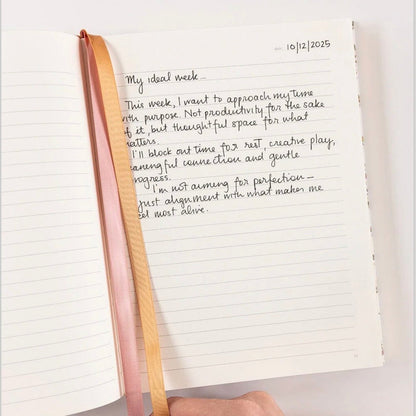 10/12/2025
My ideal week...
This week, I want to approach my time
with purpose. Not productivity for the sake
of it, but thoughtful space for what
matters.
I'll block out time for rest, creative play,
meaningful connection and gentle
progress.
I'm not aiming for perfection—
just alignment with what makes me
feel most alive.